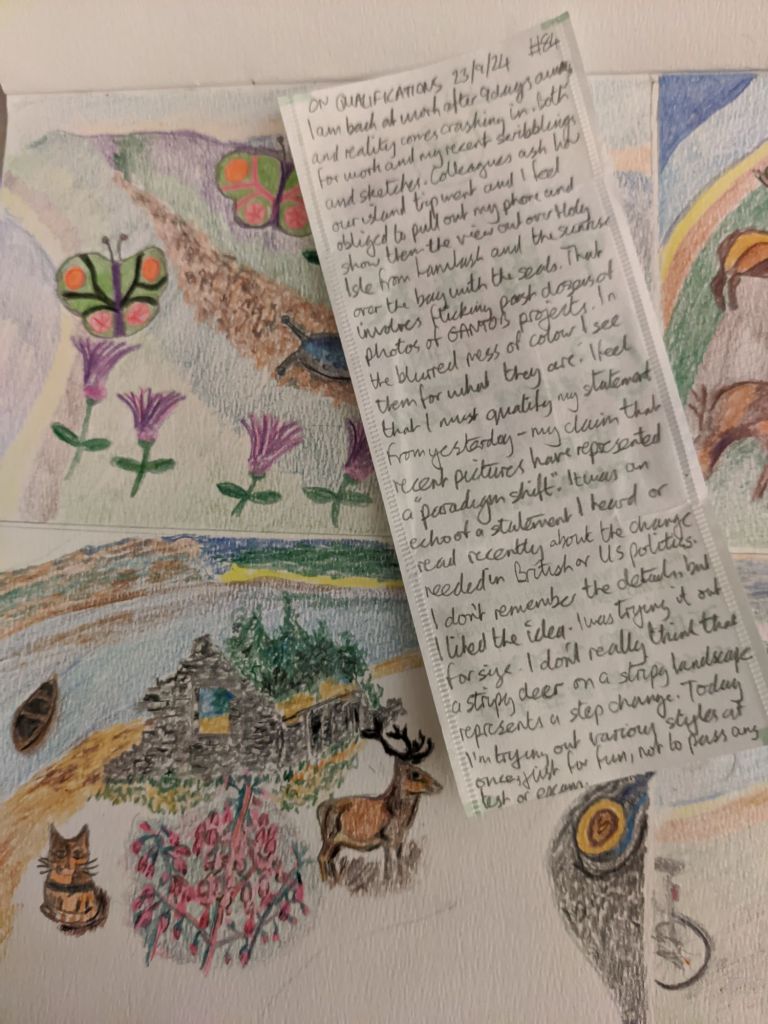 ON QUALIFICATIONS 23/9/24 #84
I am back at work after 9 days away
and reality comes crashing in. Both
for work and my recent scribblings
and sketches. Colleagues ask how
our island trip went and I feel
obliged to pull out my phone and
show them the view out over Holy
Isle from Lamlash and the sunrise
over the bay with the seals. That
involves flicking past dozens of
photos of projects. In
the blurred mess of colour I see
them for what they are. I feel
that I must qualify my statement
from yesterday - my claim that
recent pictures have represented
a "paradigm shift". It was an
echo of a statement I heard or
read recently about the change
needed in British or US politics.
I don't remember the details, but
I liked the idea. I was trying it out
for size. I don't really think that
a stripy deer on a stripy landscape
represents a step change. Today
I'm trying out various styles at
once, just for fun, not to pass any
test or exam.